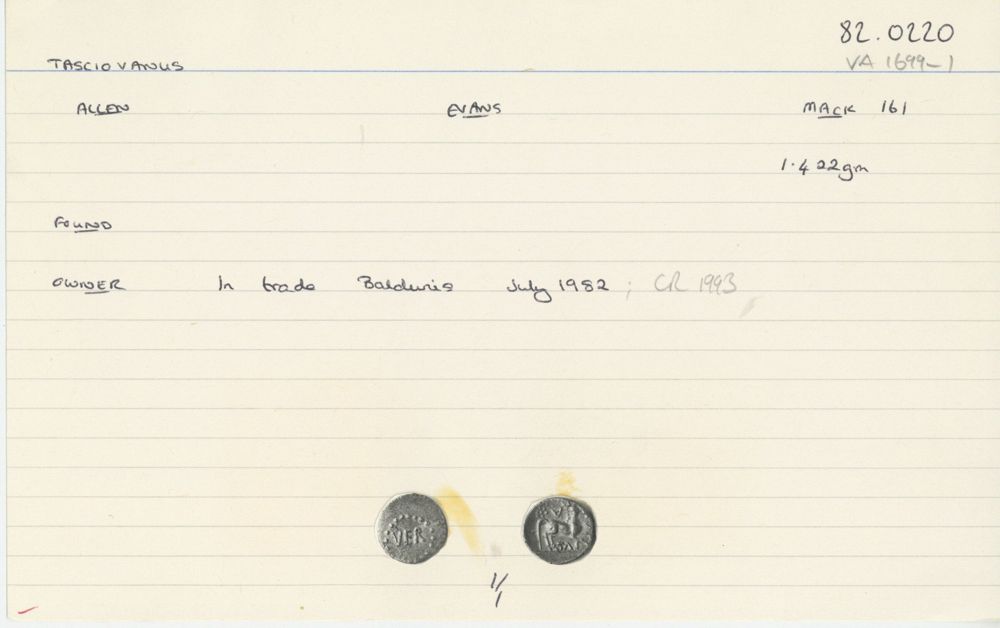 82.0220
TASCIOVANUS VA 1699-1
ALLEN EVANS MACK 161
1.422gm
FOUND
OWNER In trade Baldwins July 1982 ; CR 1993
VER
1/1